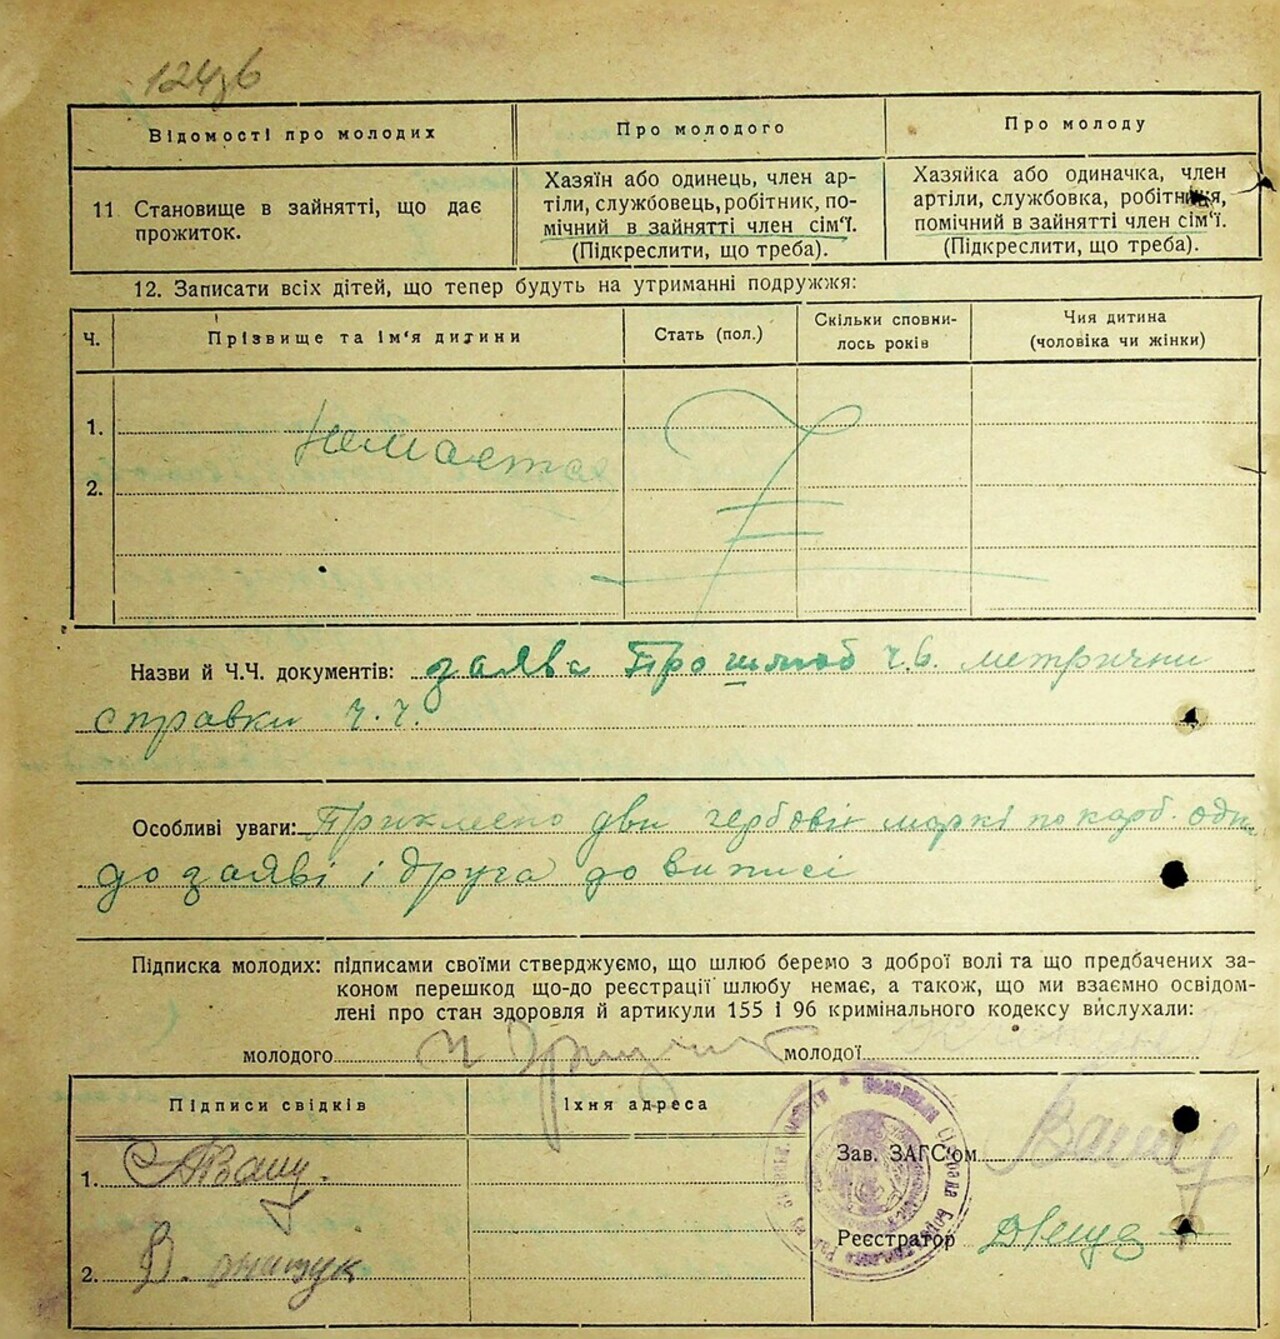 124зв
Відомості про молодих
Про молодого
Про молоду
11 Становище в зайнятті, що дає
прожиток.
Хазяїн або одинець, член ар-
тіли, службовець, робітник, по-
мічний в зайнятті член сім‘ї.
(Підкреслити, що треба).
Хазяйка або одиначка, член
артіли, службовка, робітниця,
помічний в зайнятті член сім‘ї.
(Підкреслити, що треба).
12. Записати всіх дітей, що тепер будуть на утриманні подружжя:
Ч.
Прізвище та ім‘я дитини
Стать (пол.)
Скільки сповни-
лось років
Чия дитина
(чоловіка чи жінки)
1.
Немається
2.
Назви й Ч.Ч. документів: заява про шлюб ч.6. метрични
справки ч.ч.
Особливі уваги: Приклеено дви гербовіи маркі по карб. одна
до заяві і друга до виписі
Підписка молодих: підписами своїми стверджуємо, що шлюб беремо з доброї волі та що предбачених за-
коном перешкод що-до реєстрації шлюбу немає, а також, що ми взаємно освідом-
лені про стан здоровля й артикули 155 і 96 кримінального кодексу вислухали:
молодого
молодої
Підписи свідків
Їхня адреса
Зав. ЗАГС‘ом
1.
Реєстратор
2.